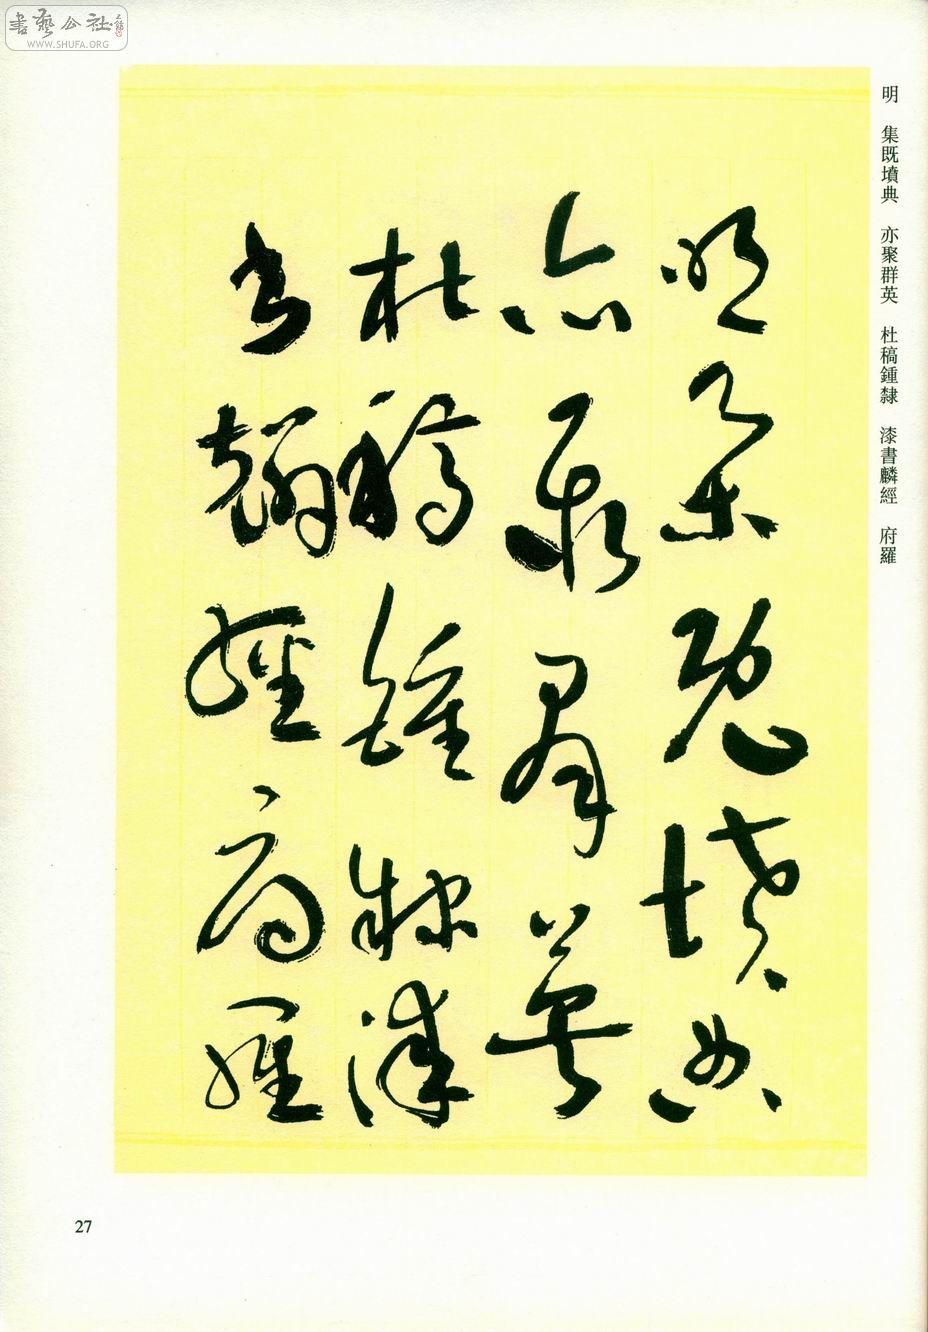 書藝公社
WWW.SHUFA.ORG
明 集既墳典 亦聚群英 杜稿鍾隸 漆書麟經 府羅
明集既墳典
亦聚群英
杜稿鍾隸漆
書麟經府羅
27